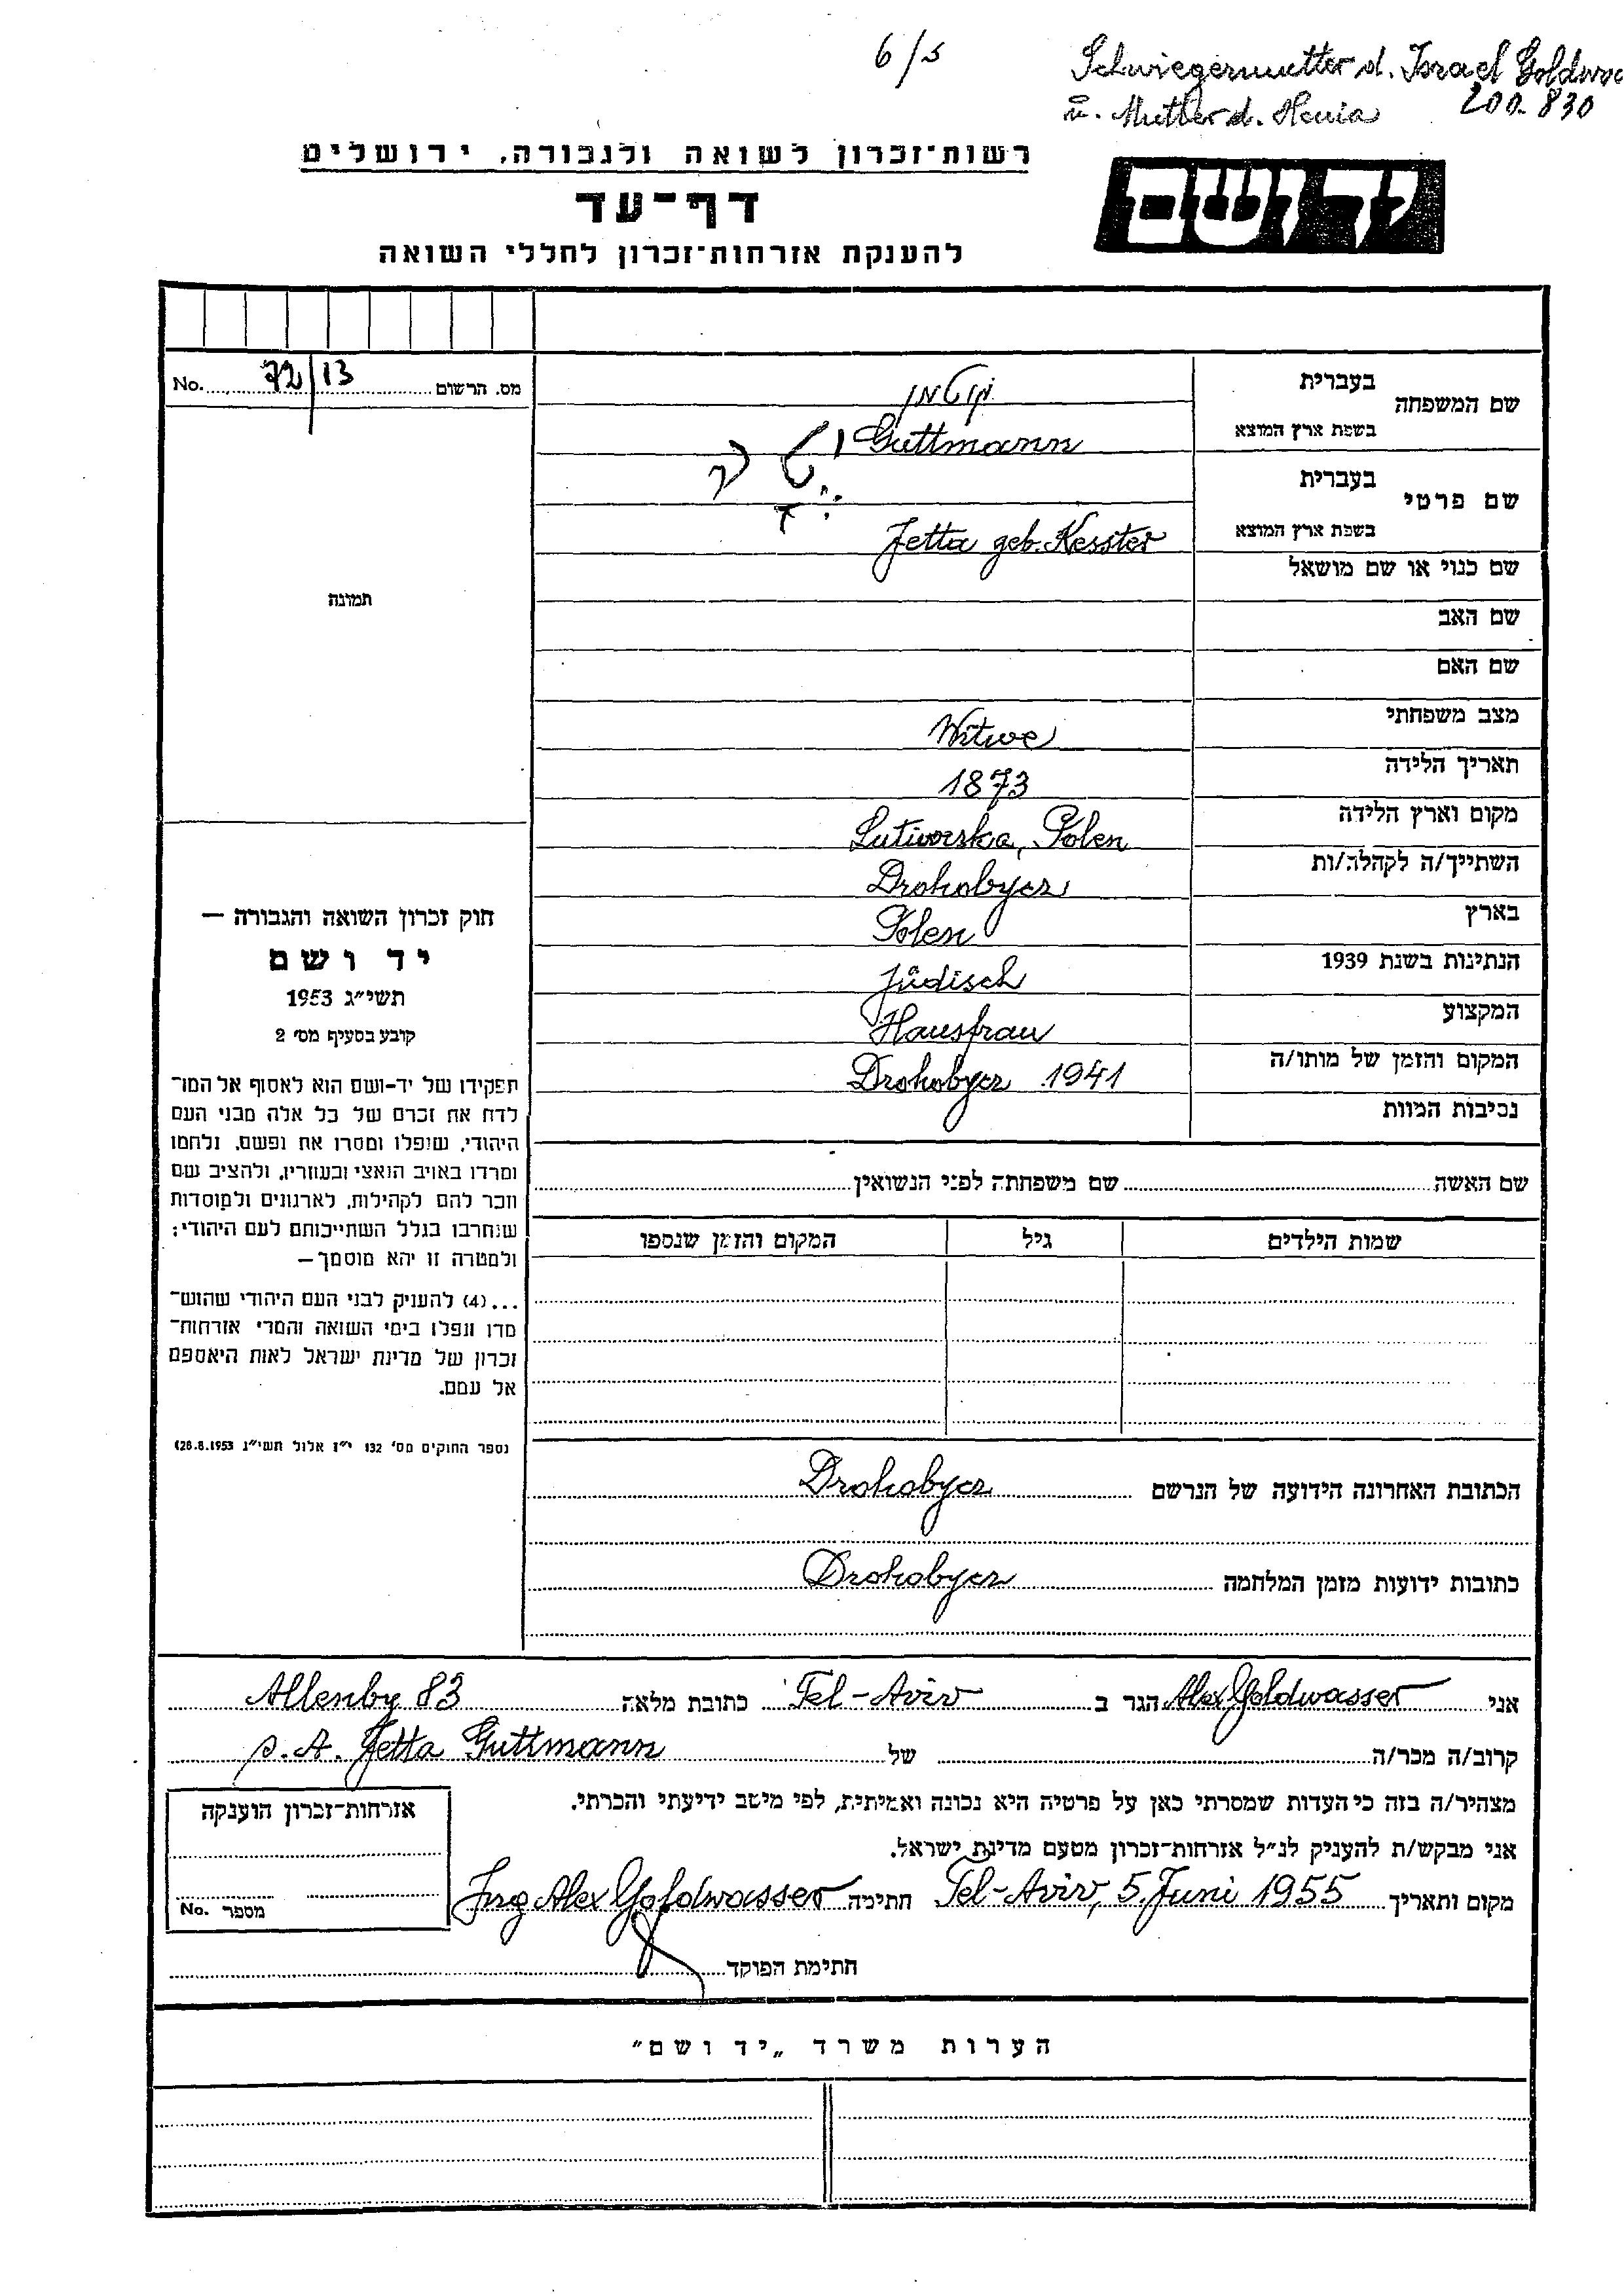 6/5
Schwiegermutter d. Israel Goldwa
u. Mutter d. Henia 200.830
רשות־זכרון לשואה ולגבורה, ירושלים
יד ושם
דף־עד
להענקת אזרחות־זכרון לחללי השואה
No. 72/13 מס. הרשום
שם המשפחה
בעברית גוטמן
בשפת ארץ המוצא Guttmann
שם פרטי
בעברית
בשפת ארץ המוצא Jetta geb. Kessler
שם כנוי או שם מושאל
תמונה
שם האב
שם האם
מצב משפחתי Witwe
תאריך הלידה 1873
מקום וארץ הלידה Lutworska, Polen
השתייך/ה לקהלה/ות Drohobycz
בארץ Polen
הנתינות בשנת 1939 Jüdisch
המקצוע Hausfrau
המקום והזמן של מותו/ה Drohobycz 1941
נסיבות המוות
חוק זכרון השואה והגבורה —
יד ושם
תשי״ג 1953
קובע בסעיף מס׳ 2
תפקידו של יד-ושם הוא לאסוף אל המו־
לדת את זכרם של כל אלה מבני העם
היהודי, שנפלו ומסרו את נפשם, נלחמו
ומרדו באויב הנאצי ובעוזריו, ולהציב שם
וזכר להם לקהילות, לארגונים ולמוסדות
שנחרבו בגלל השתייכותם לעם היהודי;
ולמטרה זו יהא מוסמך —
...(4) להעניק לבני העם היהודי שהוש־
מדו ונפלו בימי השואה והמרי אזרחות־
זכרון של מדינת ישראל לאות היאספם
אל עמם.
(ספר החוקים מס׳ 132 י״ז אלול תשי״ג 28.8.1953)
שם האשה שם משפחתה לפני הנשואין
שמות הילדים גיל המקום והזמן שנספו
הכתובת האחרונה הידועה של הנרשם Drohobycz
כתובות ידועות מזמן המלחמה Drohobycz
אני Alex Goldwasser הגר ב Tel-Aviv כתובת מלאה Allenby 83
קרוב/ה מכר/ה של p. A. Jetta Guttmann
מצהיר/ה בזה כי העדות שמסרתי כאן על פרטיה היא נכונה ואמיתית, לפי מיטב ידיעתי והכרתי.
אני מבקש/ת להעניק לנ״ל אזרחות־זכרון מטעם מדינת ישראל.
מקום ותאריך Tel-Aviv, 5. Juni 1955 חתימה Ing Alex Goldwasser
חתימת הפוקד
אזרחות־זכרון הוענקה
מספר No.
הערות משרד „יד ושם״